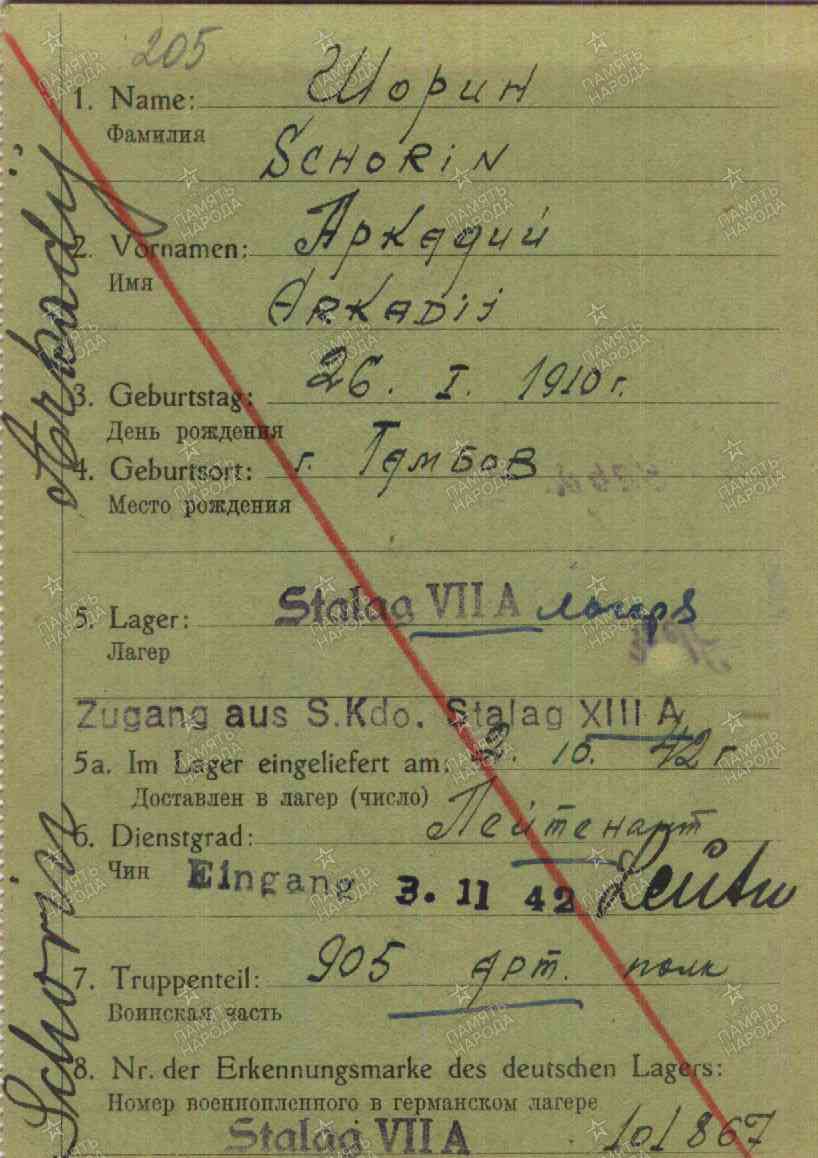 205
1. Name: Шорин
Фамилия
SCHORIN
2. Vornamen: Аркадий
Имя
ARKADIJ
3. Geburtstag: 26. I. 1910 г.
День рождения
4. Geburtsort: г. Тамбов
Место рождения
5. Lager: Stalag VII A
Лагер
Zugang aus S.Kdo. Stalag XIII A
5a. Im Lager eingeliefert am: 2. 10. 42 г
Доставлен в лагер (число)
6. Dienstgrad: Лейтенант
Чин Eingang 3. 11 42 Leutn
7. Truppenteil: 905 арт. полк
Воинская часть
8. Nr. der Erkennungsmarke des deutschen Lagers:
Номер военнопленного в германском лагере
Stalag VII A 101867
Schorin Arkadij
ПАМЯТЬ НАРОДА